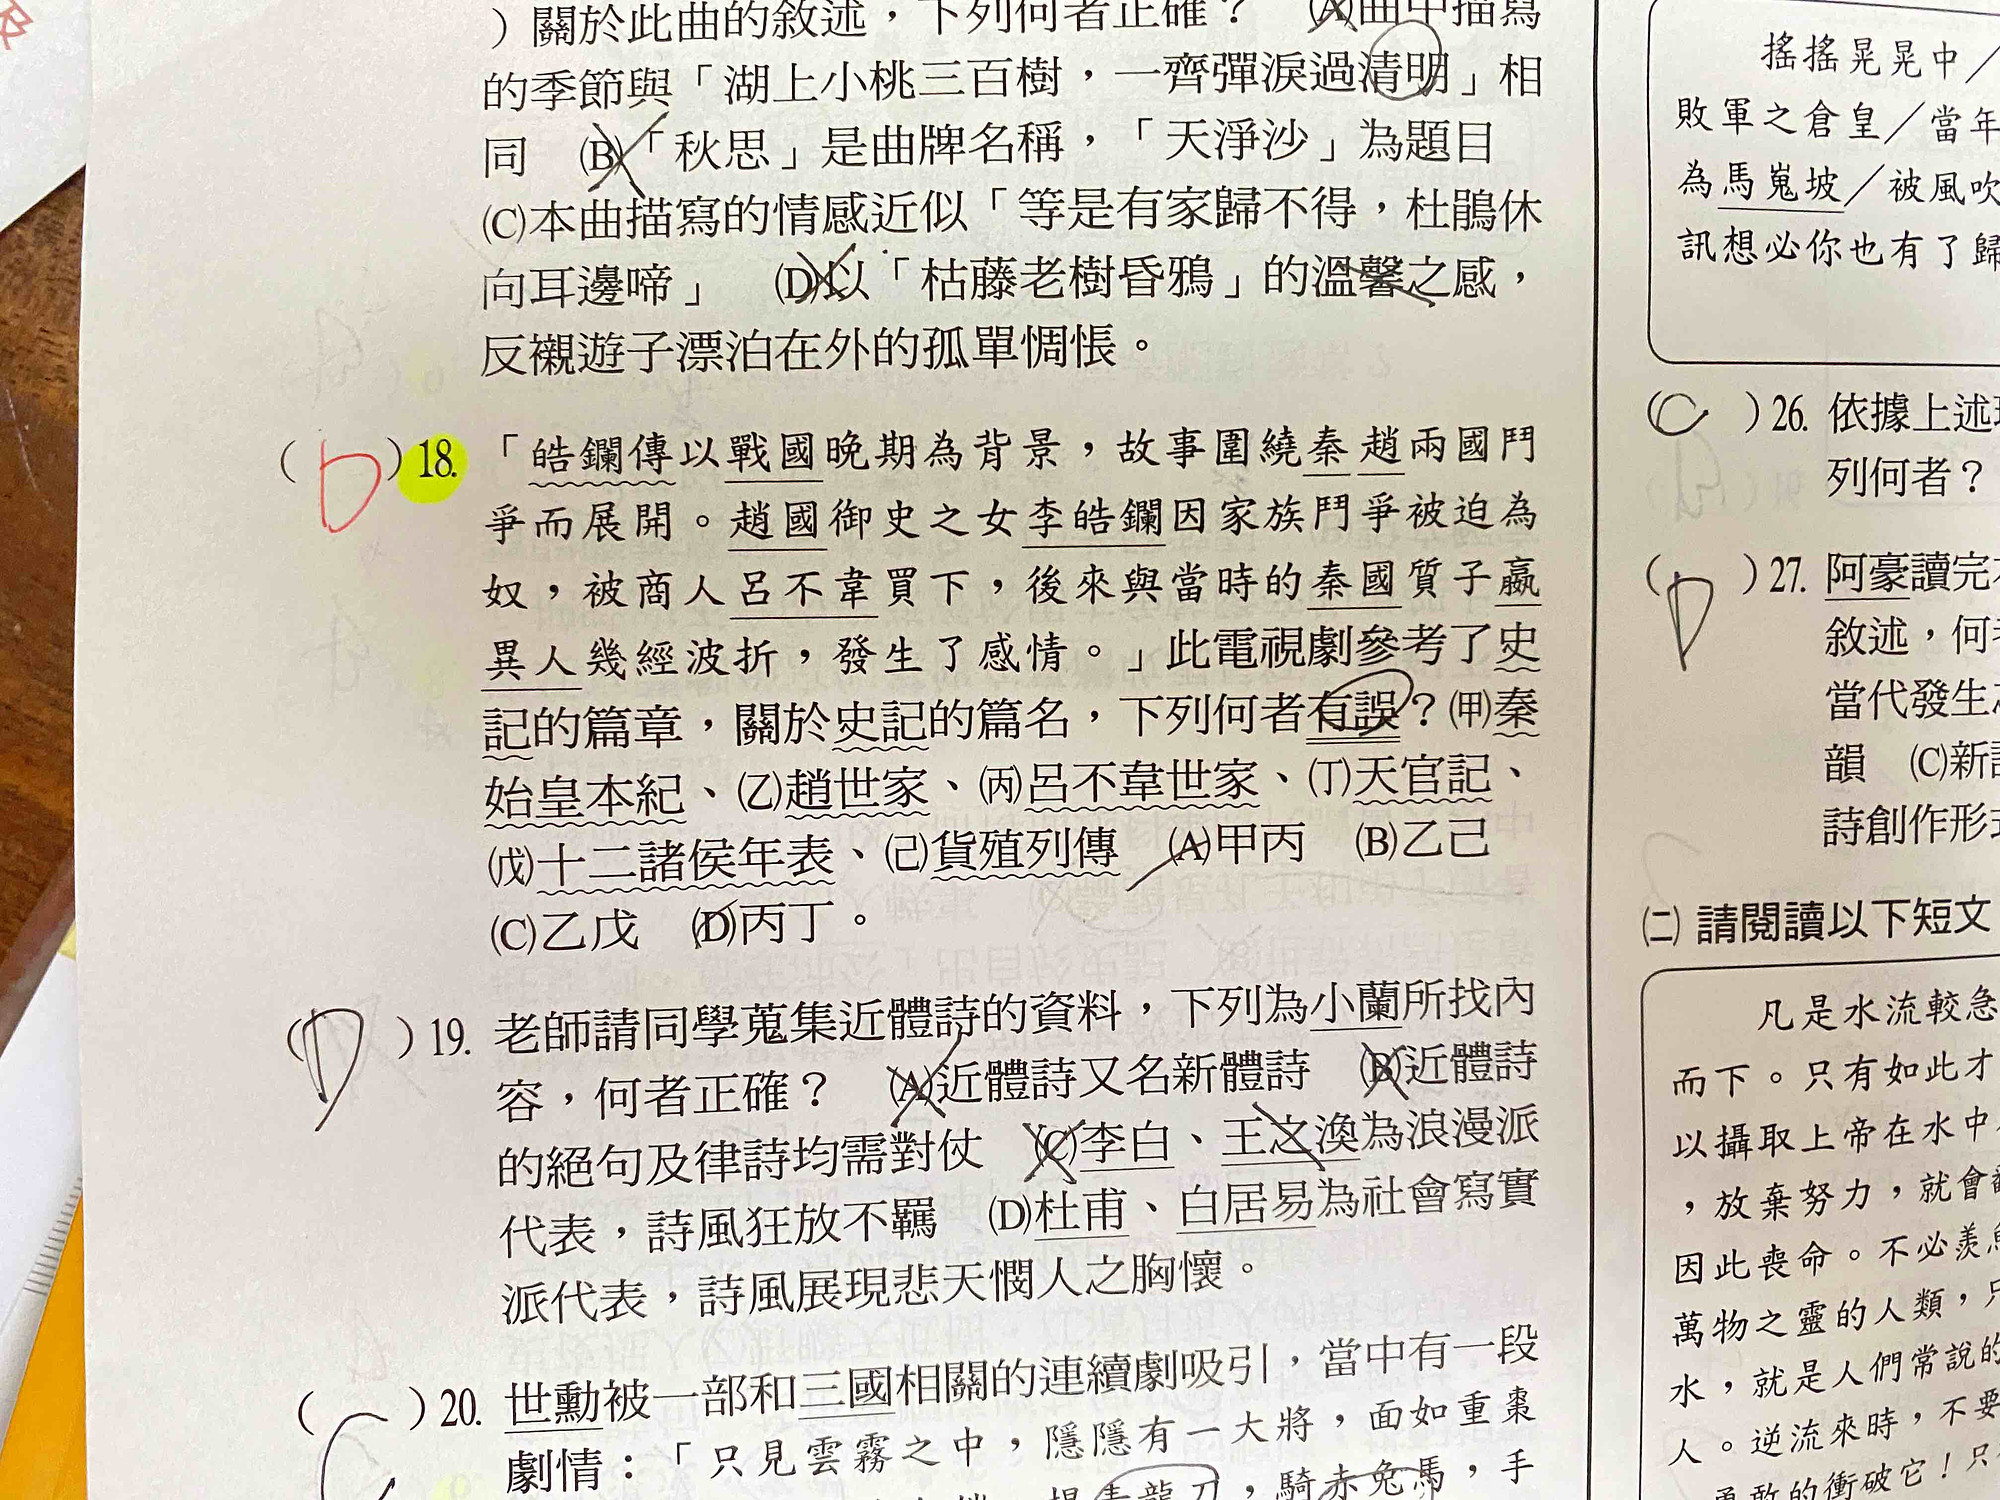 )關於此曲的敘述，下列何者正確？　(A)曲中描寫
的季節與「湖上小桃三百樹，一齊彈淚過清明」相
同　(B)「秋思」是曲牌名稱，「天淨沙」為題目
(C)本曲描寫的情感近似「等是有家歸不得，杜鵑休
向耳邊啼」　(D)以「枯藤老樹昏鴉」的溫馨之感，
反襯遊子漂泊在外的孤單惆悵。
( D )18.「皓鑭傳以戰國晚期為背景，故事圍繞秦趙兩國鬥
爭而展開。趙國御史之女李皓鑭因家族鬥爭被迫為
奴，被商人呂不韋買下，後來與當時的秦國質子嬴
異人幾經波折，發生了感情。」此電視劇參考了史
記的篇章，關於史記的篇名，下列何者有誤？(甲)秦
始皇本紀、(乙)趙世家、(丙)呂不韋世家、(丁)天官記、
(戊)十二諸侯年表、(己)貨殖列傳　(A)甲丙　(B)乙己
(C)乙戊　(D)丙丁。
( D )19. 老師請同學蒐集近體詩的資料，下列為小蘭所找內
容，何者正確？　(A)近體詩又名新體詩　(B)近體詩
的絕句及律詩均需對仗　(C)李白、王之渙為浪漫派
代表，詩風狂放不羈　(D)杜甫、白居易為社會寫實
派代表，詩風展現悲天憫人之胸懷。
( )20. 世勳被一部和三國相關的連續劇吸引，當中有一段
劇情：「只見雲霧之中，隱隱有一大將，面如重棗
青龍刀，騎赤兔馬，手
搖搖晃晃中／
敗軍之倉皇／當年
為馬嵬坡／被風吹
訊想必你也有了歸
( C )26. 依據上述
列何者？
( D )27. 阿豪讀完
敘述，何
當代發生
韻　(C)新
詩創作形
(二) 請閱讀以下短文
凡是水流較急
而下。只有如此才
以攝取上帝在水中
，放棄努力，就會
因此喪命。不必羨
萬物之靈的人類，
水，就是人們常說的
人。逆流來時，不要
勇敢的衝破它！只